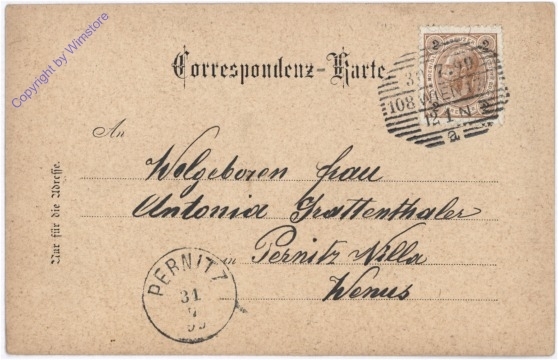 Copyright by Wimstore
Correspondenz-Karte
2 2
31 7.99
108 WIEN
12 1 N
a
An
Wolgeboren frau
Antonia Grattenthaler
in Pernitz Villa
Wenus
Nur für die Adresse.
PERNITZ
31
7
99